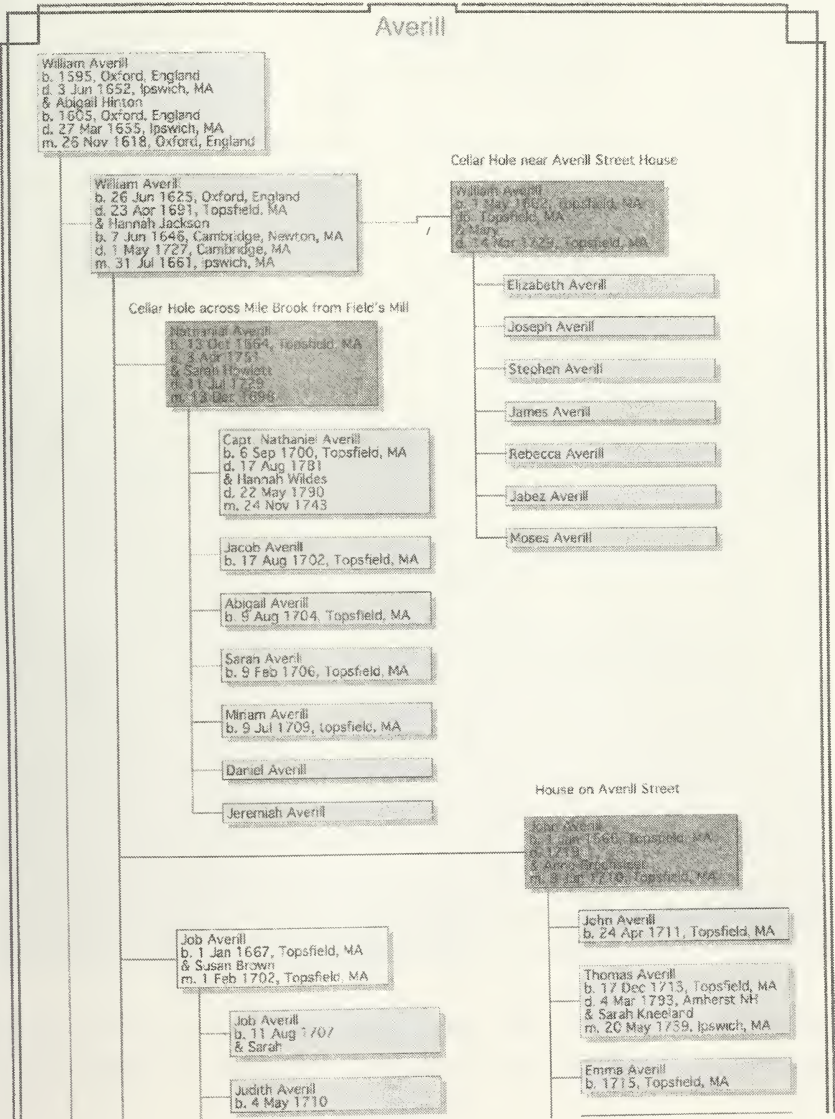 Averill
William Averill
b. 1595, Oxford, England
d. 3 Jun 1652, Ipswich, MA
& Abigail Hinton
b. 1605, Oxford, England
d. 27 Mar 1655, Ipswich, MA
m. 26 Nov 1618, Oxford, England
William Averill
b. 26 Jun 1625, Oxford, England
d. 23 Apr 1691, Topsfield, MA
& Hannah Jackson
b. 7 Jun 1646, Cambridge, Newton, MA
d. 1 May 1727, Cambridge, MA
m. 31 Jul 1661, Ipswich, MA
Cellar Hole near Averill Street House
William Averill
b. 1 May 1662, Topsfield, MA
dp. Topsfield, MA
& Mary
d. 14 Mar 1729, Topsfield, MA
Elizabeth Averill
Joseph Averill
Stephen Averill
James Averill
Rebecca Averill
Jabez Averill
Moses Averill
Cellar Hole across Mile Brook from Field's Mill
Nathaniel Averill
b. 13 Oct 1664, Topsfield, MA
d. 3 Apr 1751
& Sarah Howlett
d. 11 Jul 1729
m. 13 Dec 1698
Capt. Nathaniel Averill
b. 6 Sep 1700, Topsfield, MA
d. 17 Aug 1781
& Hannah Wildes
d. 22 May 1790
m. 24 Nov 1743
Jacob Averill
b. 17 Aug 1702, Topsfield, MA
Abigail Averill
b. 9 Aug 1704, Topsfield, MA
Sarah Averill
b. 9 Feb 1706, Topsfield, MA
Miriam Averill
b. 9 Jul 1709, topsfield, MA
Daniel Averill
Jeremiah Averill
House on Averill Street
John Averill
b. 1 Jan 1666, Topsfield, MA
d.
& Anna
m. 9 Jan 1710, Topsfield, MA
John Averill
b. 24 Apr 1711, Topsfield, MA
Thomas Averill
b. 17 Dec 1713, Topsfield, MA
d. 4 Mar 1793, Amherst NH
& Sarah Kneeland
m. 20 May 1739, Ipswich, MA
Emma Averill
b. 1715, Topsfield, MA
Job Averill
b. 1 Jan 1667, Topsfield, MA
& Susan Brown
m. 1 Feb 1702, Topsfield, MA
Job Averill
b. 11 Aug 1707
& Sarah
Judith Averill
b. 4 May 1710